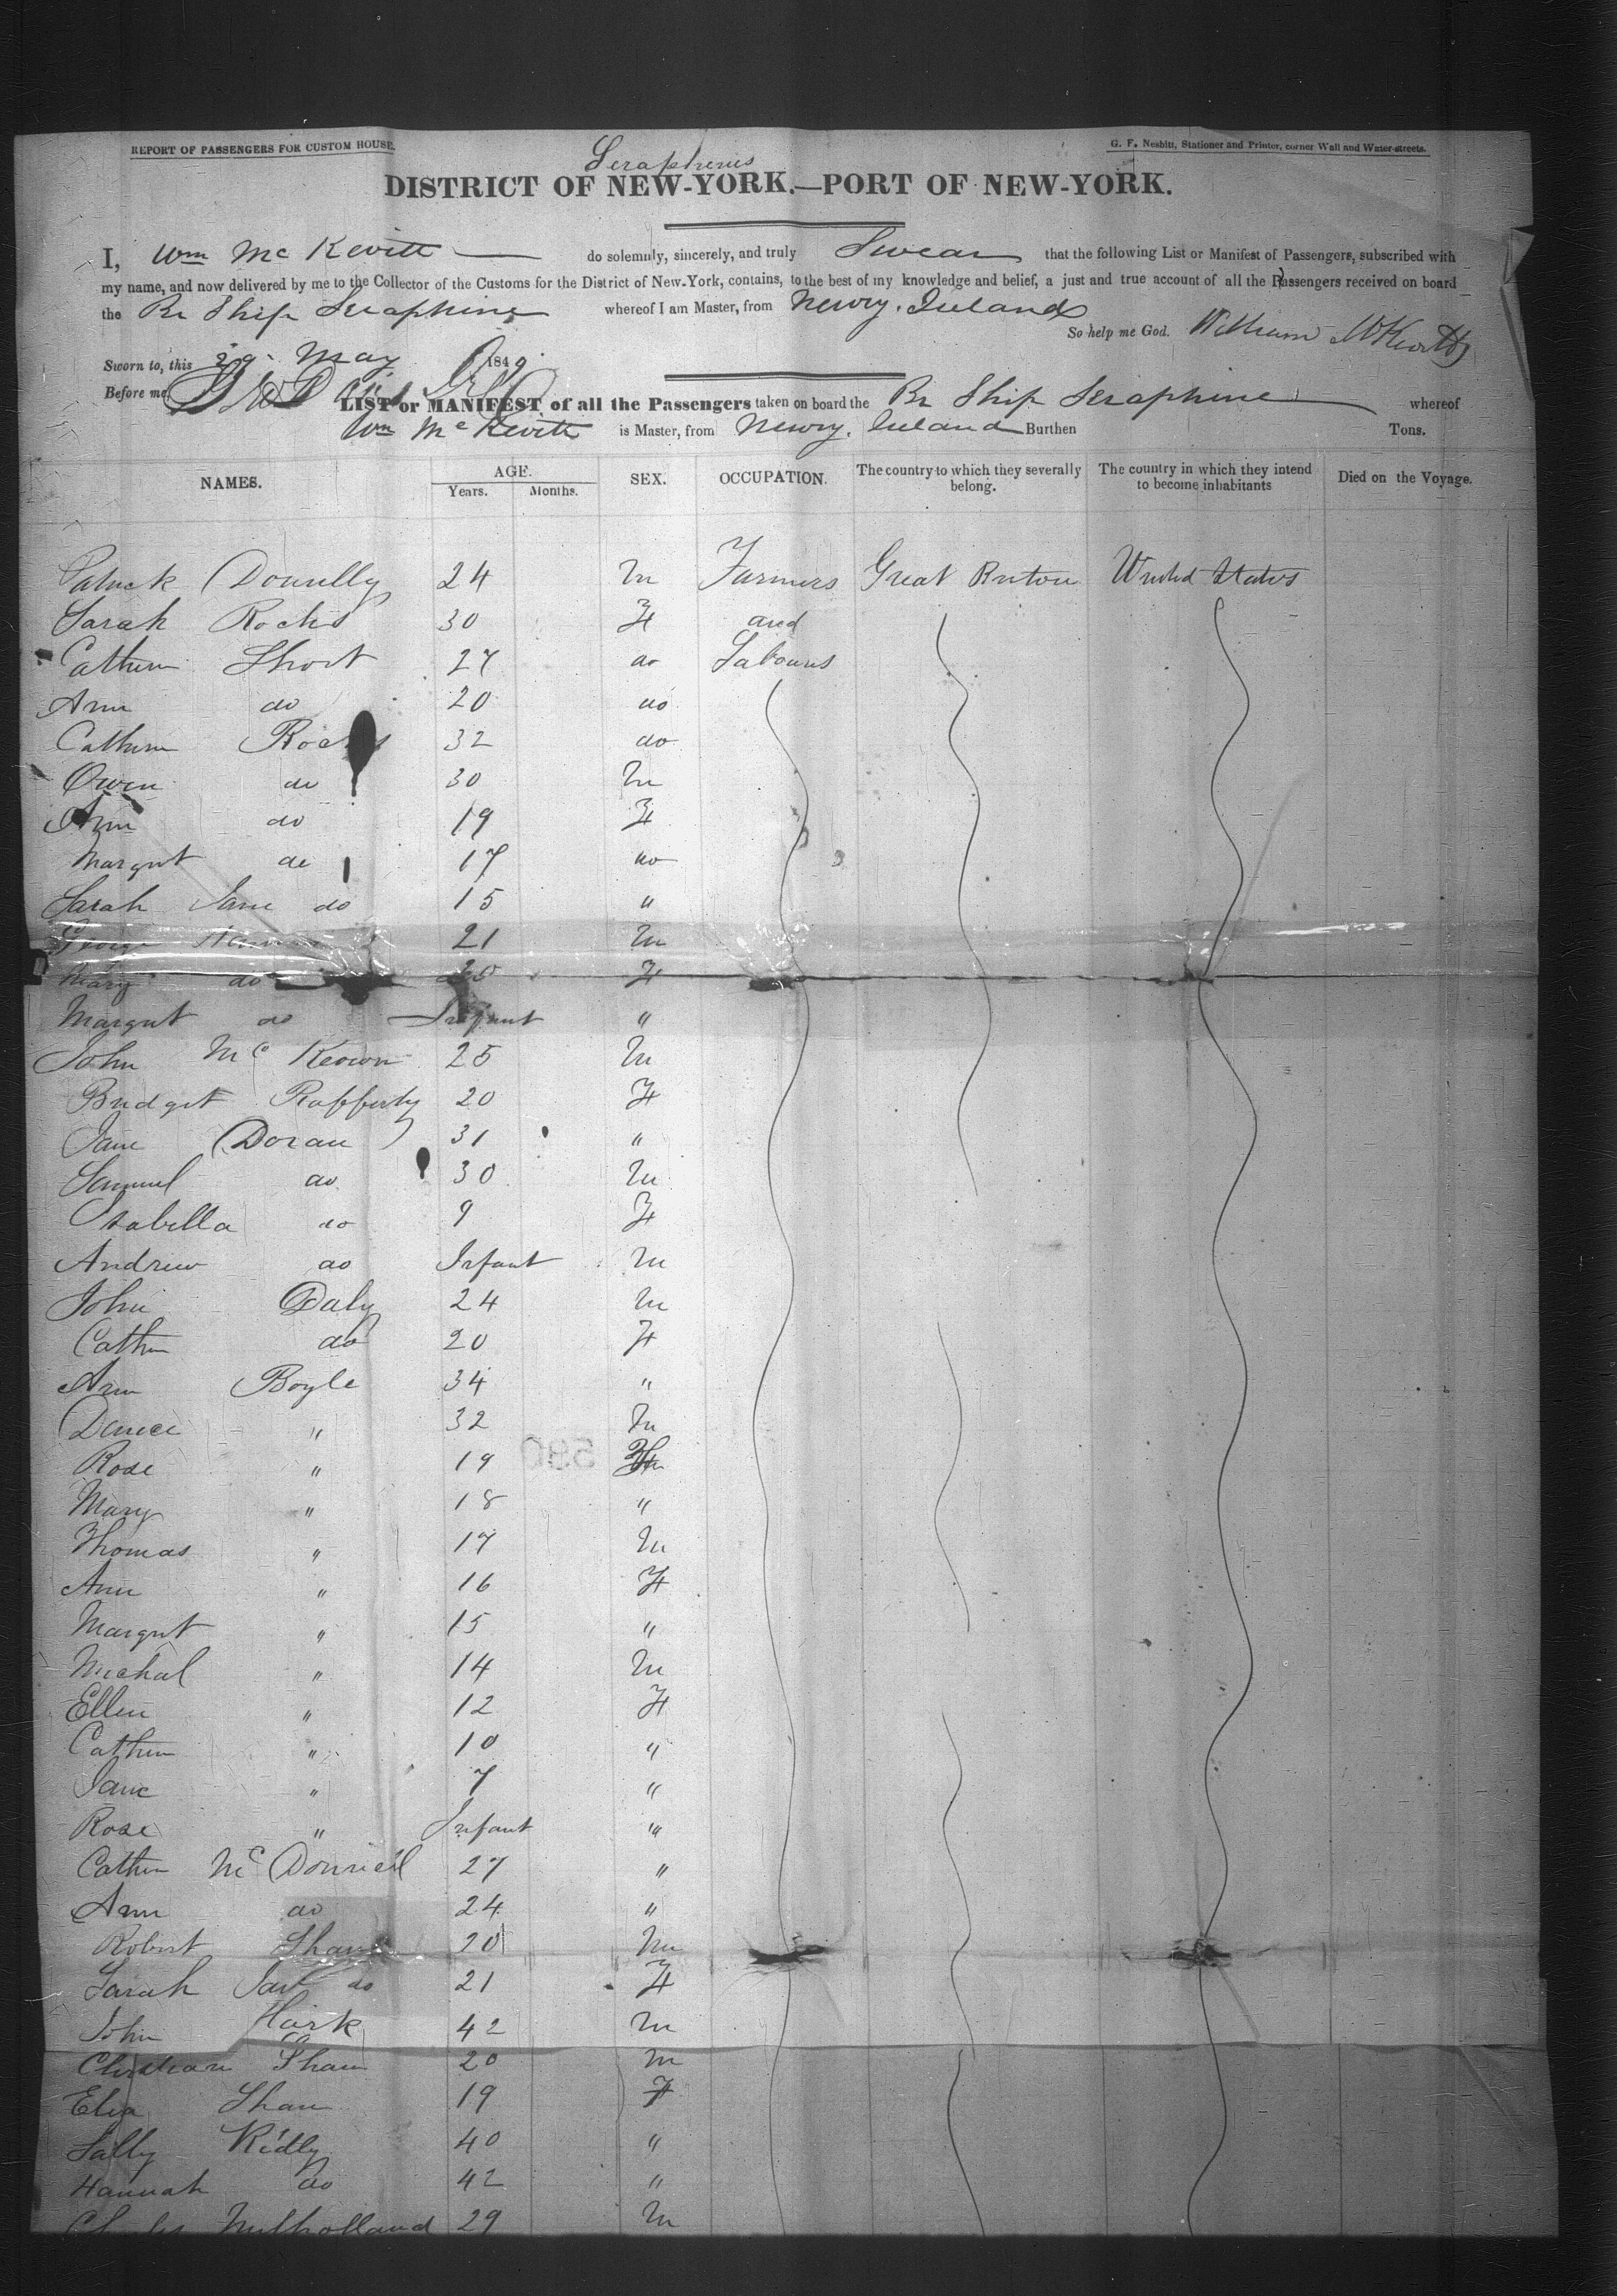 REPORT OF PASSENGERS FOR CUSTOM HOUSE.
G. F. Nesbitt, Stationer and Printer, corner Wall and Water-streets.
DISTRICT OF NEW-YORK.—PORT OF NEW-YORK.
I, Wm Mc Kevitt do solemnly, sincerely, and truly Swear that the following List or Manifest of Passengers, subscribed with
my name, and now delivered by me to the Collector of the Customs for the District of New-York, contains, to the best of my knowledge and belief, a just and true account of all the Passengers received on board
the Br Ship Seraphine whereof I am Master, from Newry. Ireland
So help me God. William McKevitt
Sworn to, this 29 May 1849
Before me,
LIST or MANIFEST of all the Passengers taken on board the Br Ship Seraphine whereof
Wm Mc Kevitt is Master, from Newry. Ireland Burthen Tons.
NAMES. AGE. Years. Months. SEX. OCCUPATION. The country to which they severally belong. The country in which they intend to become inhabitants Died on the Voyage.
Patrick Donnelly 24 M Farmers Great Britain United States
Sarah Rocks 30 F and
Cathern Short 27 do Labourers
Ann do 20 do
Cathern Rocks 32 do
Owen do 30 M
Ann do 19 F
Margret do 17 do
Sarah Jane do 15 "
George 21 M
Mary do 25 F
Margret do Infant "
John Mc Keown 25 M
Bridget Rafferty 20 F
Jane Doran 31 "
Samuel do 30 M
Isabella do 9 F
Andrew do Infant M
John Daly 24 M
Cathn do 20 F
Ann Boyle 34 "
" 32 M
Rose " 19
Mary " 18 "
Thomas " 17 M
Ann " 16 F
Margret " 15 "
Michal " 14 M
Ellen " 12 F
Cathern " 10 "
Jane " 7 "
Rose " Infant "
Cathn Mc Donnell 27 "
Ann do 24 "
Robert Shaw 20 M
Sarah Jane do 21 F
John 42 M
Christian Shaw 20 M
Eliza Shaw 19 F
Sally Ridly 40 "
Hannah do 42 "
Charles Mulholland 29 M